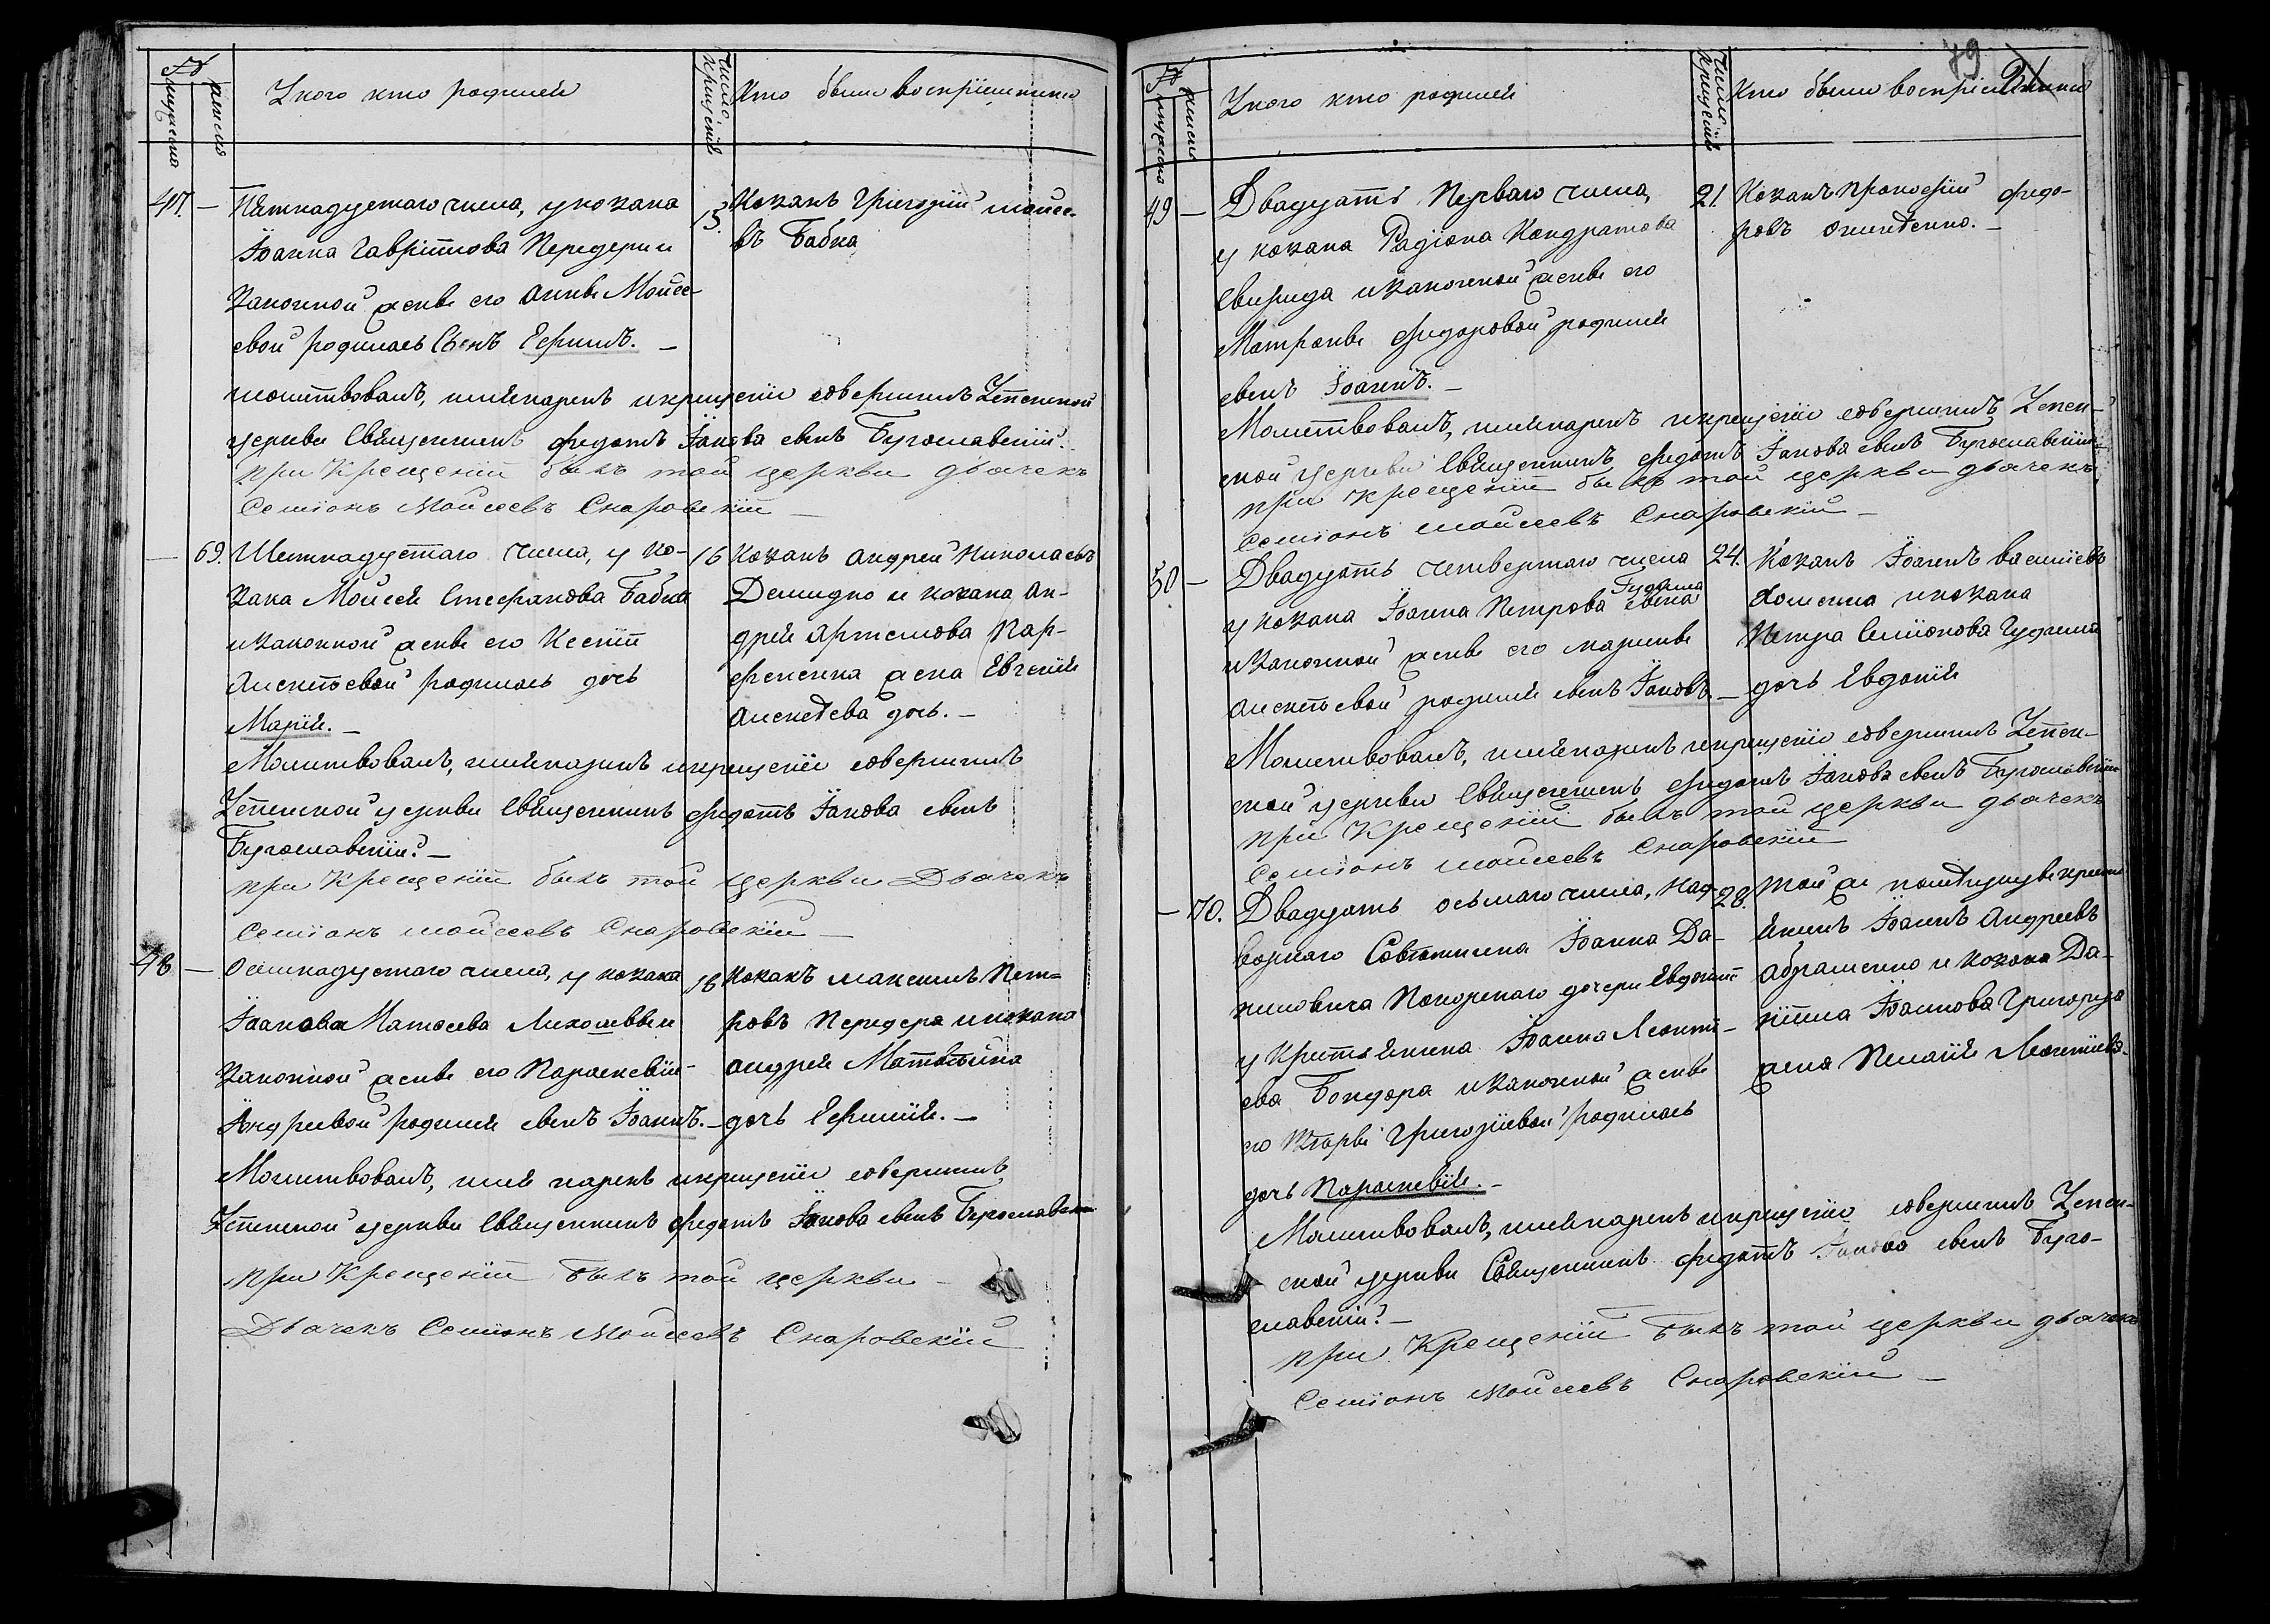 №
мущена
женска
У кого кто родился
Число крещенія
Кто были воспріемники
47. — Пятнадцетаго числа, у козака
Іоанна Гавріилова Передерия и
законной жены его Анны Моисе-
евой родилась сынъ Ефимъ. —
15.
Козакъ Григорій Моисе-
въ Бабка
молитвовалъ, имя нарекъ и крещеніе совершилъ Успенской
церкви Священникъ Федотъ Іакова сынъ Богославскій.
при Крещеніи былъ той церкви дьячекъ
Семіонъ Моисеевъ Снаровскій —
— 69. Шетнадцетаго числа, у ко-
зака Моисея Стефанова Бабки
и законной жены его Ксеніи
Алексѣевой родилась дочь
Марія. —
16
Козакъ Андрей Николаевъ
Демидко и козака Ан-
дрея Артемова Пар-
фененка жена Евгенія
Алексѣева дочь. —
Молитвовалъ, имя нарекъ и крещеніе совершилъ
Успенской церкви Священникъ Федотъ Іакова сынъ
Богославскій. —
при Крещеніи былъ той церкви Дьячекъ
Семіонъ Моисеевъ Снаровскій —
48 — Осимнадцетаго числа, у козака
Іоанна Матфеева и
законной жены его Параскевіи
Андреевой родился сынъ Іоаннъ. —
18
Козакъ Максимъ Пет-
ровъ Передера и козака
Андрея Матвѣйка
дочь Ефимія. —
Молитвовалъ, имя нарекъ и крещеніе совершилъ
Успенской церкви Священникъ Федотъ Іакова сынъ Богославскій
при Крещеніи былъ той церкви —
Дьячекъ Семіонъ Моисеевъ Снаровскій
79
№
мущена
женска
У кого кто родился
Число крещенія
Кто были воспріемники
49 — Двадцать Перваго числа,
у козака Радіона Кондратова
Свирида и законной жены его
Матроны Федоровой родился
сынъ Іоаннъ. —
21.
Козакъ Прокофій Федо-
ровъ
Молитвовалъ, имя нарекъ и крещеніе совершилъ Успен-
ской церкви Священникъ Федотъ Іакова сынъ Богославскій
при Крещеніи былъ той церкви дьячекъ
Семіонъ Моисеевъ Снаровскій —
50 — Двадцать четвертаго числа
у козака Іоанна Петрова сына
Гудыма
и законной жены его Марины
Алексѣевой родился сынъ Іаковъ. —
24.
Козакъ Іоаннъ Василіевъ
Хоменка и козака
Петра Симіонова Гудыми
дочь Евдокія
Молитвовалъ, имя нарекъ и крещеніе совершилъ Успен-
ской церкви Священникъ Федотъ Іакова сынъ Богославскій
при Крещеніи былъ той церкви дьячекъ
Семіонъ Моисеевъ Снаровскій
— 70. Двадцать осьмаго числа, Над-
ворнаго Совѣтника Іоанна Да-
ниловича Покорскаго дочери Евдокіи
у Крестьянина Іоанна Леонті-
ева Бондара и законной жены
его Григоріевой родилась
дочь Параскевія. —
28.
той же помѣщицы крестья-
янинъ Іоаннъ Андреевъ
Абраменко и козака Да-
ніила Іоаннова Григорца
жена Пелагія Леонтіева.
Молитвовалъ, имя нарекъ и крещеніе совершилъ Успен-
ской церкви Священникъ Федотъ Іакова сынъ Бого-
славскій. —
при Крещеніи былъ той церкви дьячекъ
Семіонъ Моисеевъ Снаровскій —